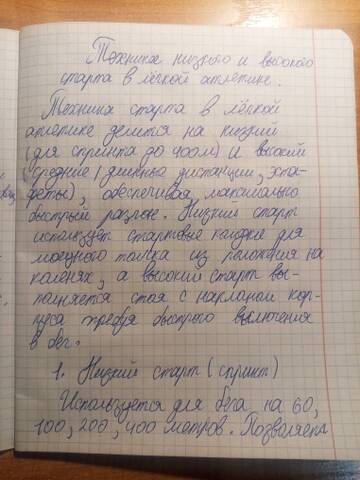 Техника низкого и высокого
старта в лёгкой атлетике.
Техника старта в лёгкой
атлетике делится на низкий
(для спринта до 400м) и высокий
(средние / длинные дистанции, эста-
феты), обеспечивая максимально
быстрый разгон. Низкий старт
использует стартовые колодки для
мощного толчка из положения на
коленях, а высокий старт вы-
полняется стоя с наклоном кор-
пуса требуя быстрого включения
в бег.
1. Низкий старт (спринт)
Используется для бега на 60,
100, 200, 400 метров. Позволяет